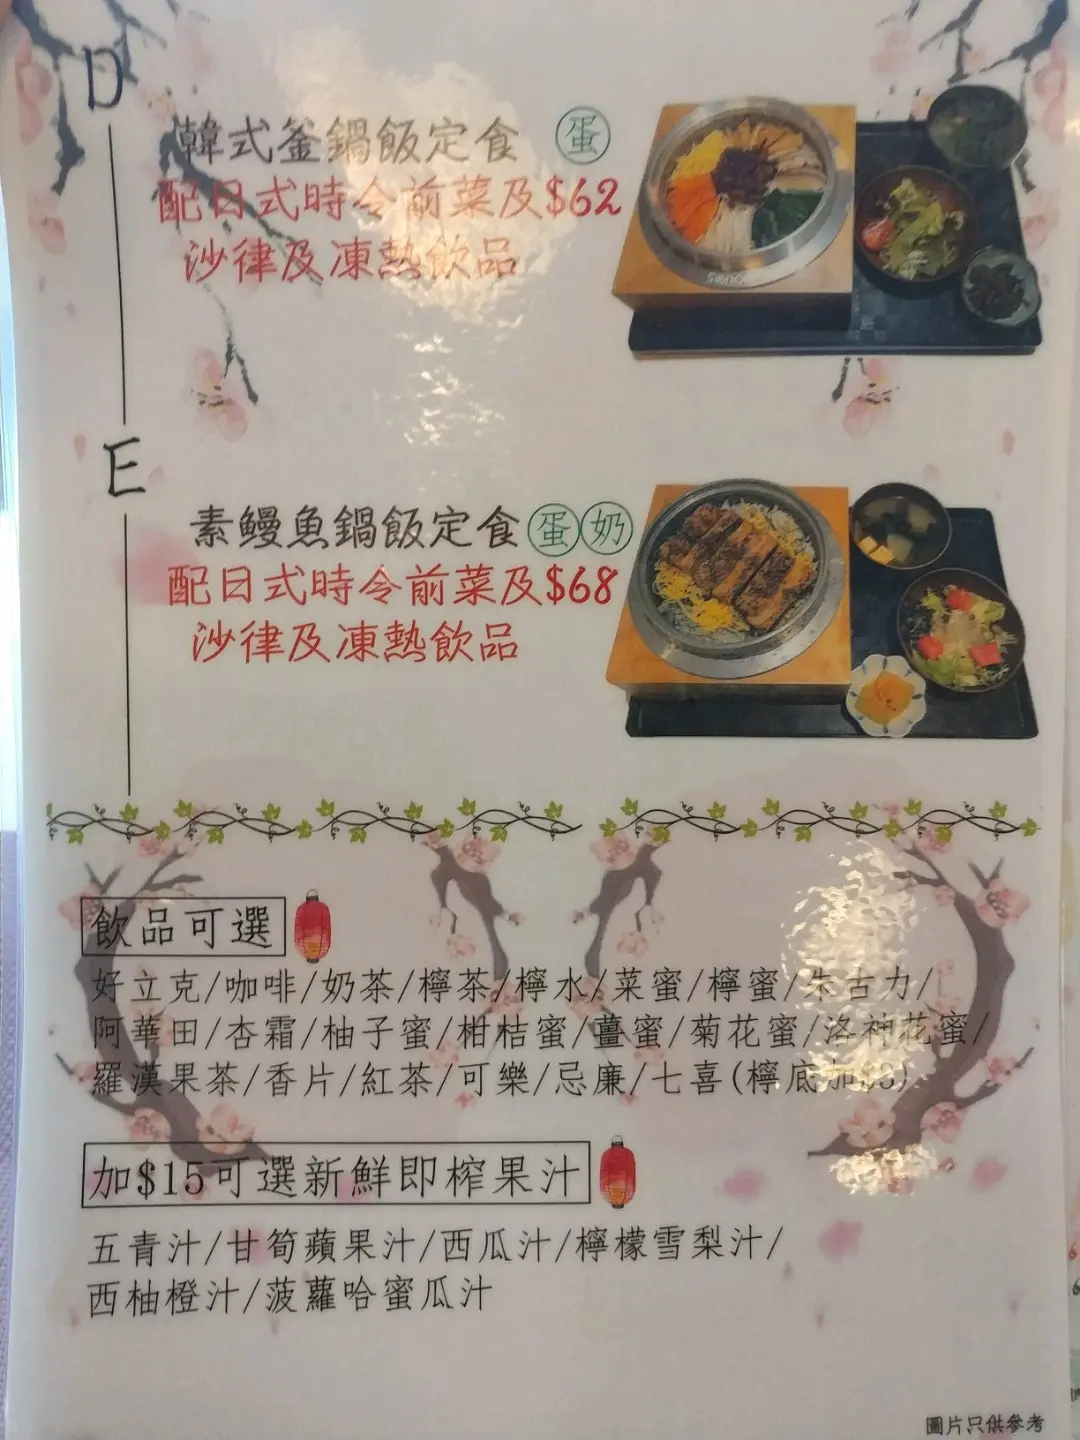 D
韓式釜鍋飯定食 蛋
配日式時令前菜及$62
沙律及凍熱飲品
E
素鰻魚鍋飯定食 蛋 奶
配日式時令前菜及$68
沙律及凍熱飲品
飲品可選
好立克/咖啡/奶茶/檸茶/檸水/菜蜜/檸蜜/朱古力/
阿華田/杏霜/柚子蜜/柑桔蜜/薑蜜/菊花蜜/洛神花蜜/
羅漢果茶/香片/紅茶/可樂/忌廉/七喜(檸底加$3)
加$15可選新鮮即榨果汁
五青汁/甘筍蘋果汁/西瓜汁/檸檬雪梨汁/
西柚橙汁/菠蘿哈蜜瓜汁
圖片只供參考